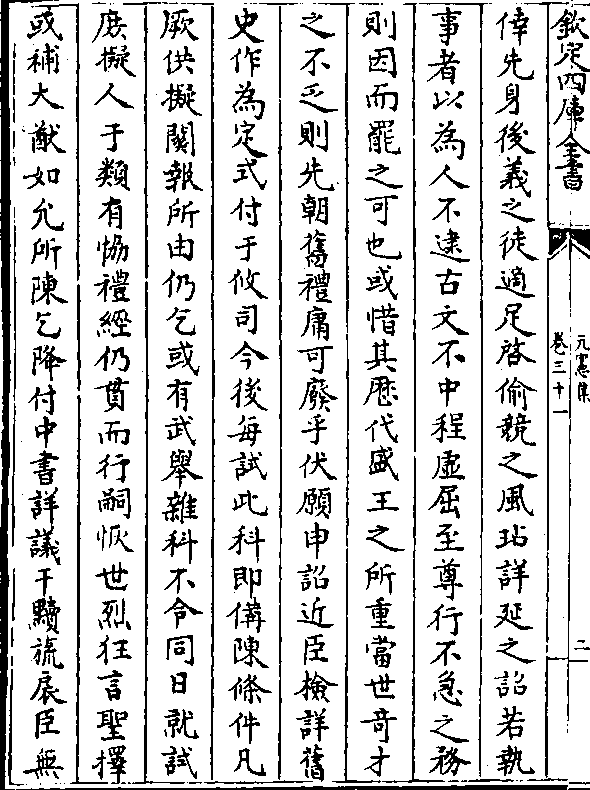 欽定四庫全書
元憲集
卷三十一
二
倖先身後義之徒適足啓偷競之風玷詳延之詔若執
事者以為人不逮古文不中程虛屈至尊行不急之務
則因而罷之可也或惜其歷代盛王之所重當世竒才
之不乏則先朝舊禮庸可廢乎伏願申詔近臣檢詳舊
史作為定式付于攸司今後每試此科即備陳條件凡
厥供擬關報所由仍乞或有武舉雜科不令同日就試
庶擬人于類有恊禮經仍貫而行嗣恢世烈狂言聖擇
或補大猷如允所陳乞降付中書詳議干黷旒扆臣無